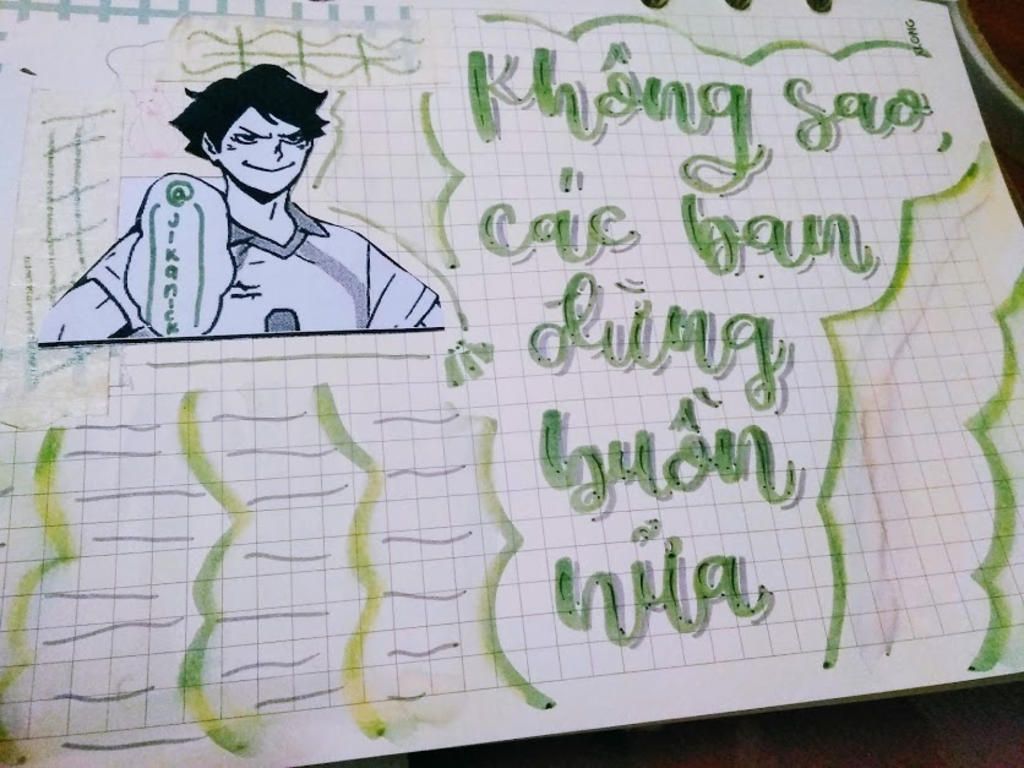 @JIKANICK
Không sao,
các bạn
đừng
buồn
nữa